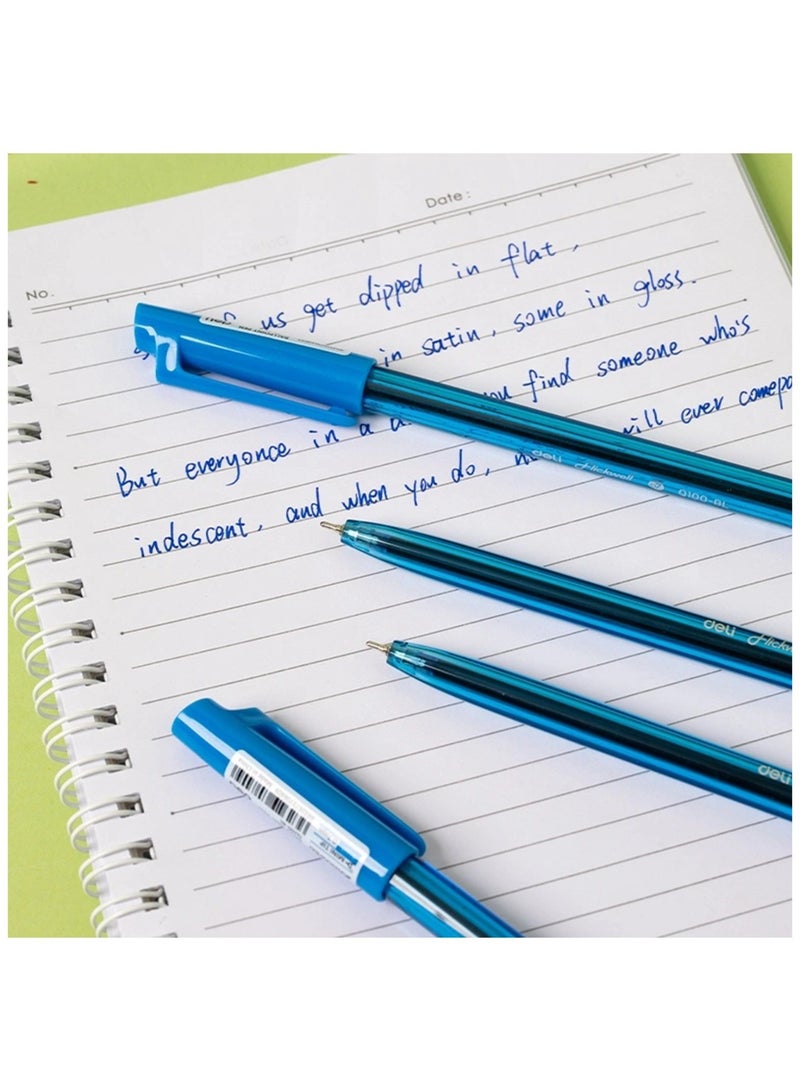 Date:
No.
us get dipped in flat,
in satin, some in gloss.
find someone who's
But everyonce in a
will ever
indescent, and when you do,
deli Flickwell Q100-BL
deli
deli